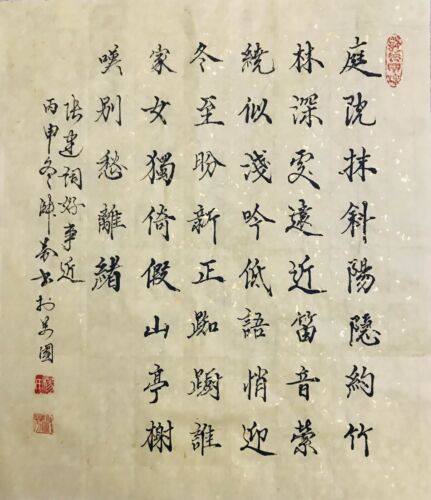 庭院抹斜陽隐約竹
林深更遠近笛音縈
繞似淺吟低語悄迎
冬至盼新正踟躕誰
家女獨倚假山亭榭
嘆别愁離緒
张建詞好事近
丙申冬
书於美國